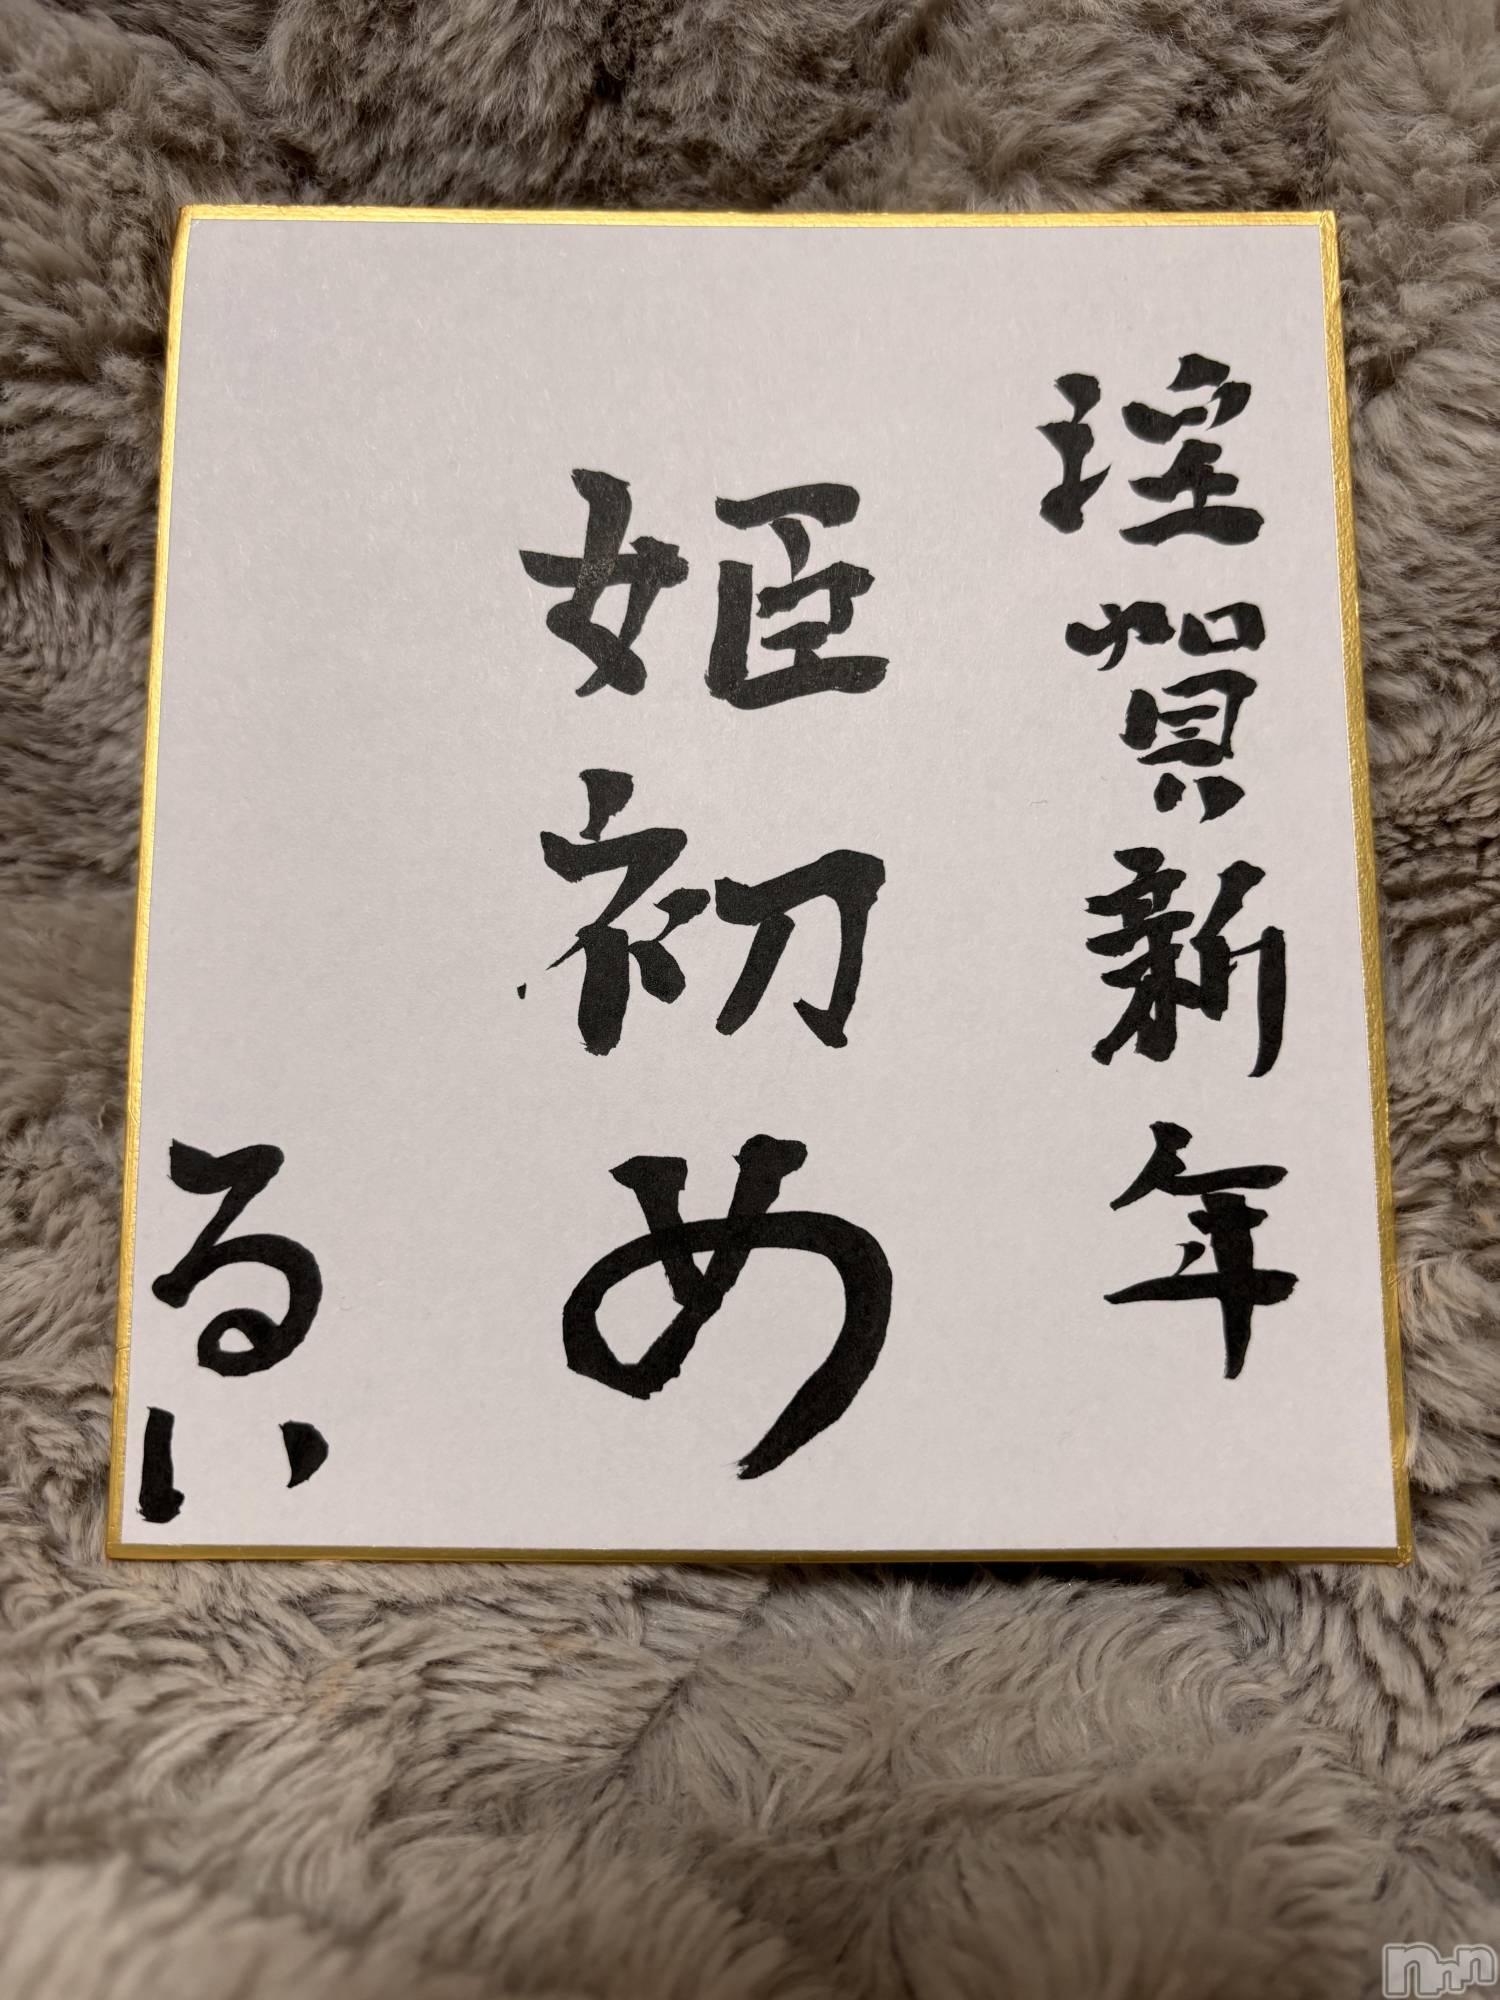 淫賀新年
姫初め
るい
nnn